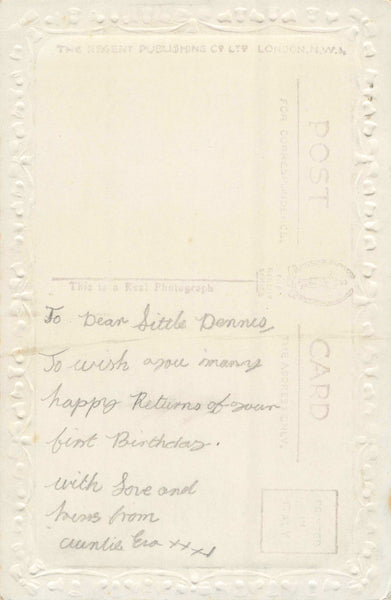 THE REGENT PUBLISHING Co LTD LONDON, N.W.1.
POST CARD
FOR CORRESPONDENCE.
This is a Real Photograph
To Dear Little Dennis
To wish you many
happy Returns of your
first Birthday.
with Love and
kisses from
auntie xxxx